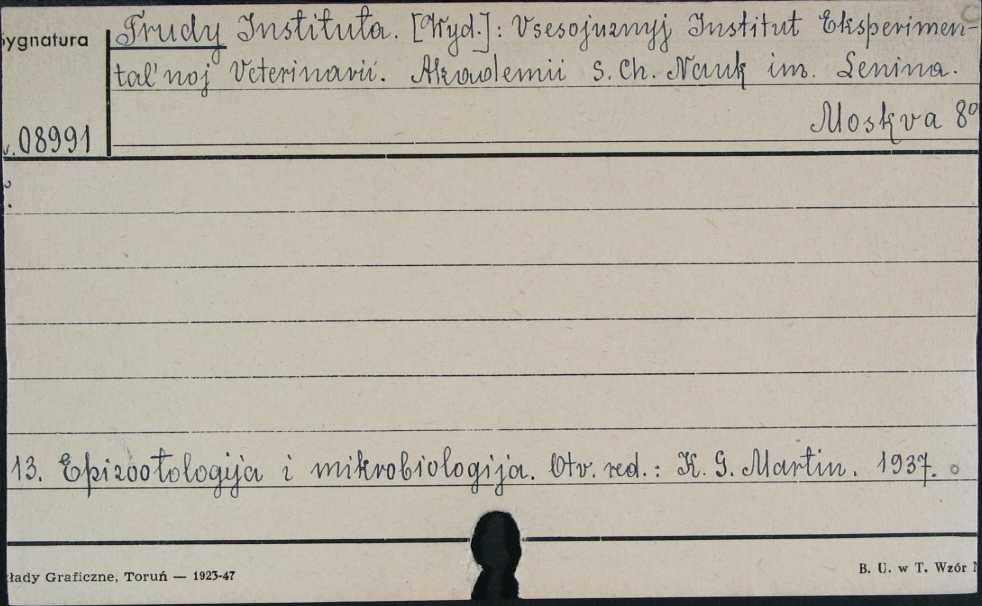 Sygnatura
Trudy Instituta. [Wyd.]: Vsesojuznyj Institut Eksperimen-
tal'noj Veterinarii. Akademii S. Ch. Nauk im. Lenina.
Moskva 8°
v. 08991
13. Epizootologija i mikrobiologija. Otv. red.: K. G. Martin. 1937.
łady Graficzne, Toruń — 1923-47
B. U. w T. Wzór